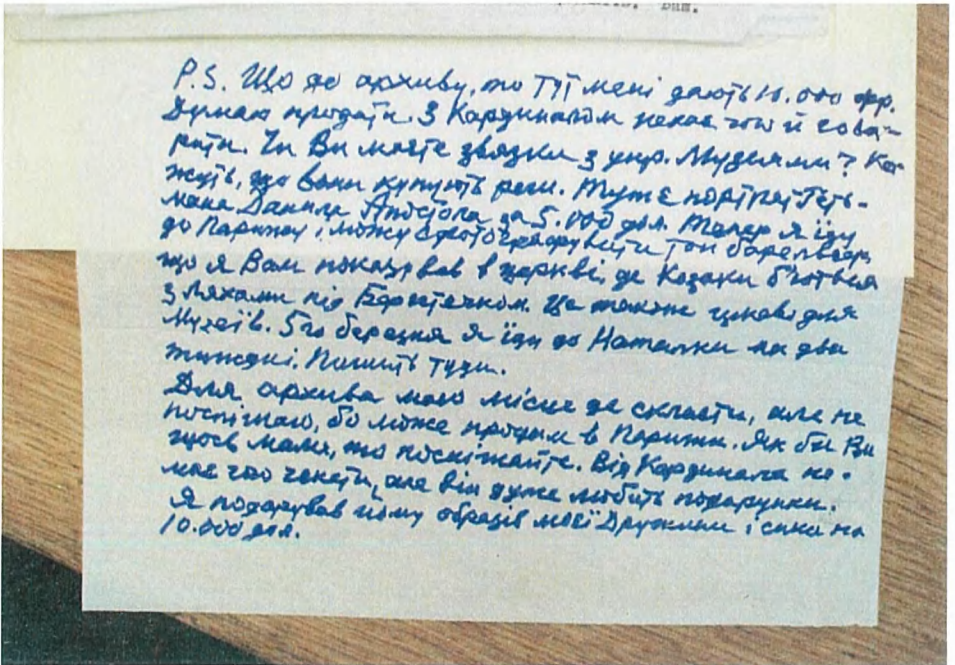 P.S. Що до архиву, то тут мені дають 10.000 фр.
Думаю продати. З Кардиналом немає чого й гово-
рити. Чи Ви маєте звязки з укр. Музеями? Ка-
жуть, що вони купують речі. Тут є портрет Геть-
мана Данила Апостола за 5.000 дол. Тепер я їду
до Парижу і можу сфотографувати той барельєф,
що я Вам показував в церкві, де Козаки б'ються
з Ляхами під Берестечком. Це також цікаве для
Музеїв. 5го березня я їду до Наталки на два
тижні. Пишіть туди.
Для архива маю місце де скласти, але не
поспішаю, бо може продам в Парижи. Як би Ви
щось мали, то поспішайте. Від Кардинала не-
має чого чекати, але він дуже любить подарунки.
Я подарував йому образів моєї Дружини і сина на
10.000 дол.